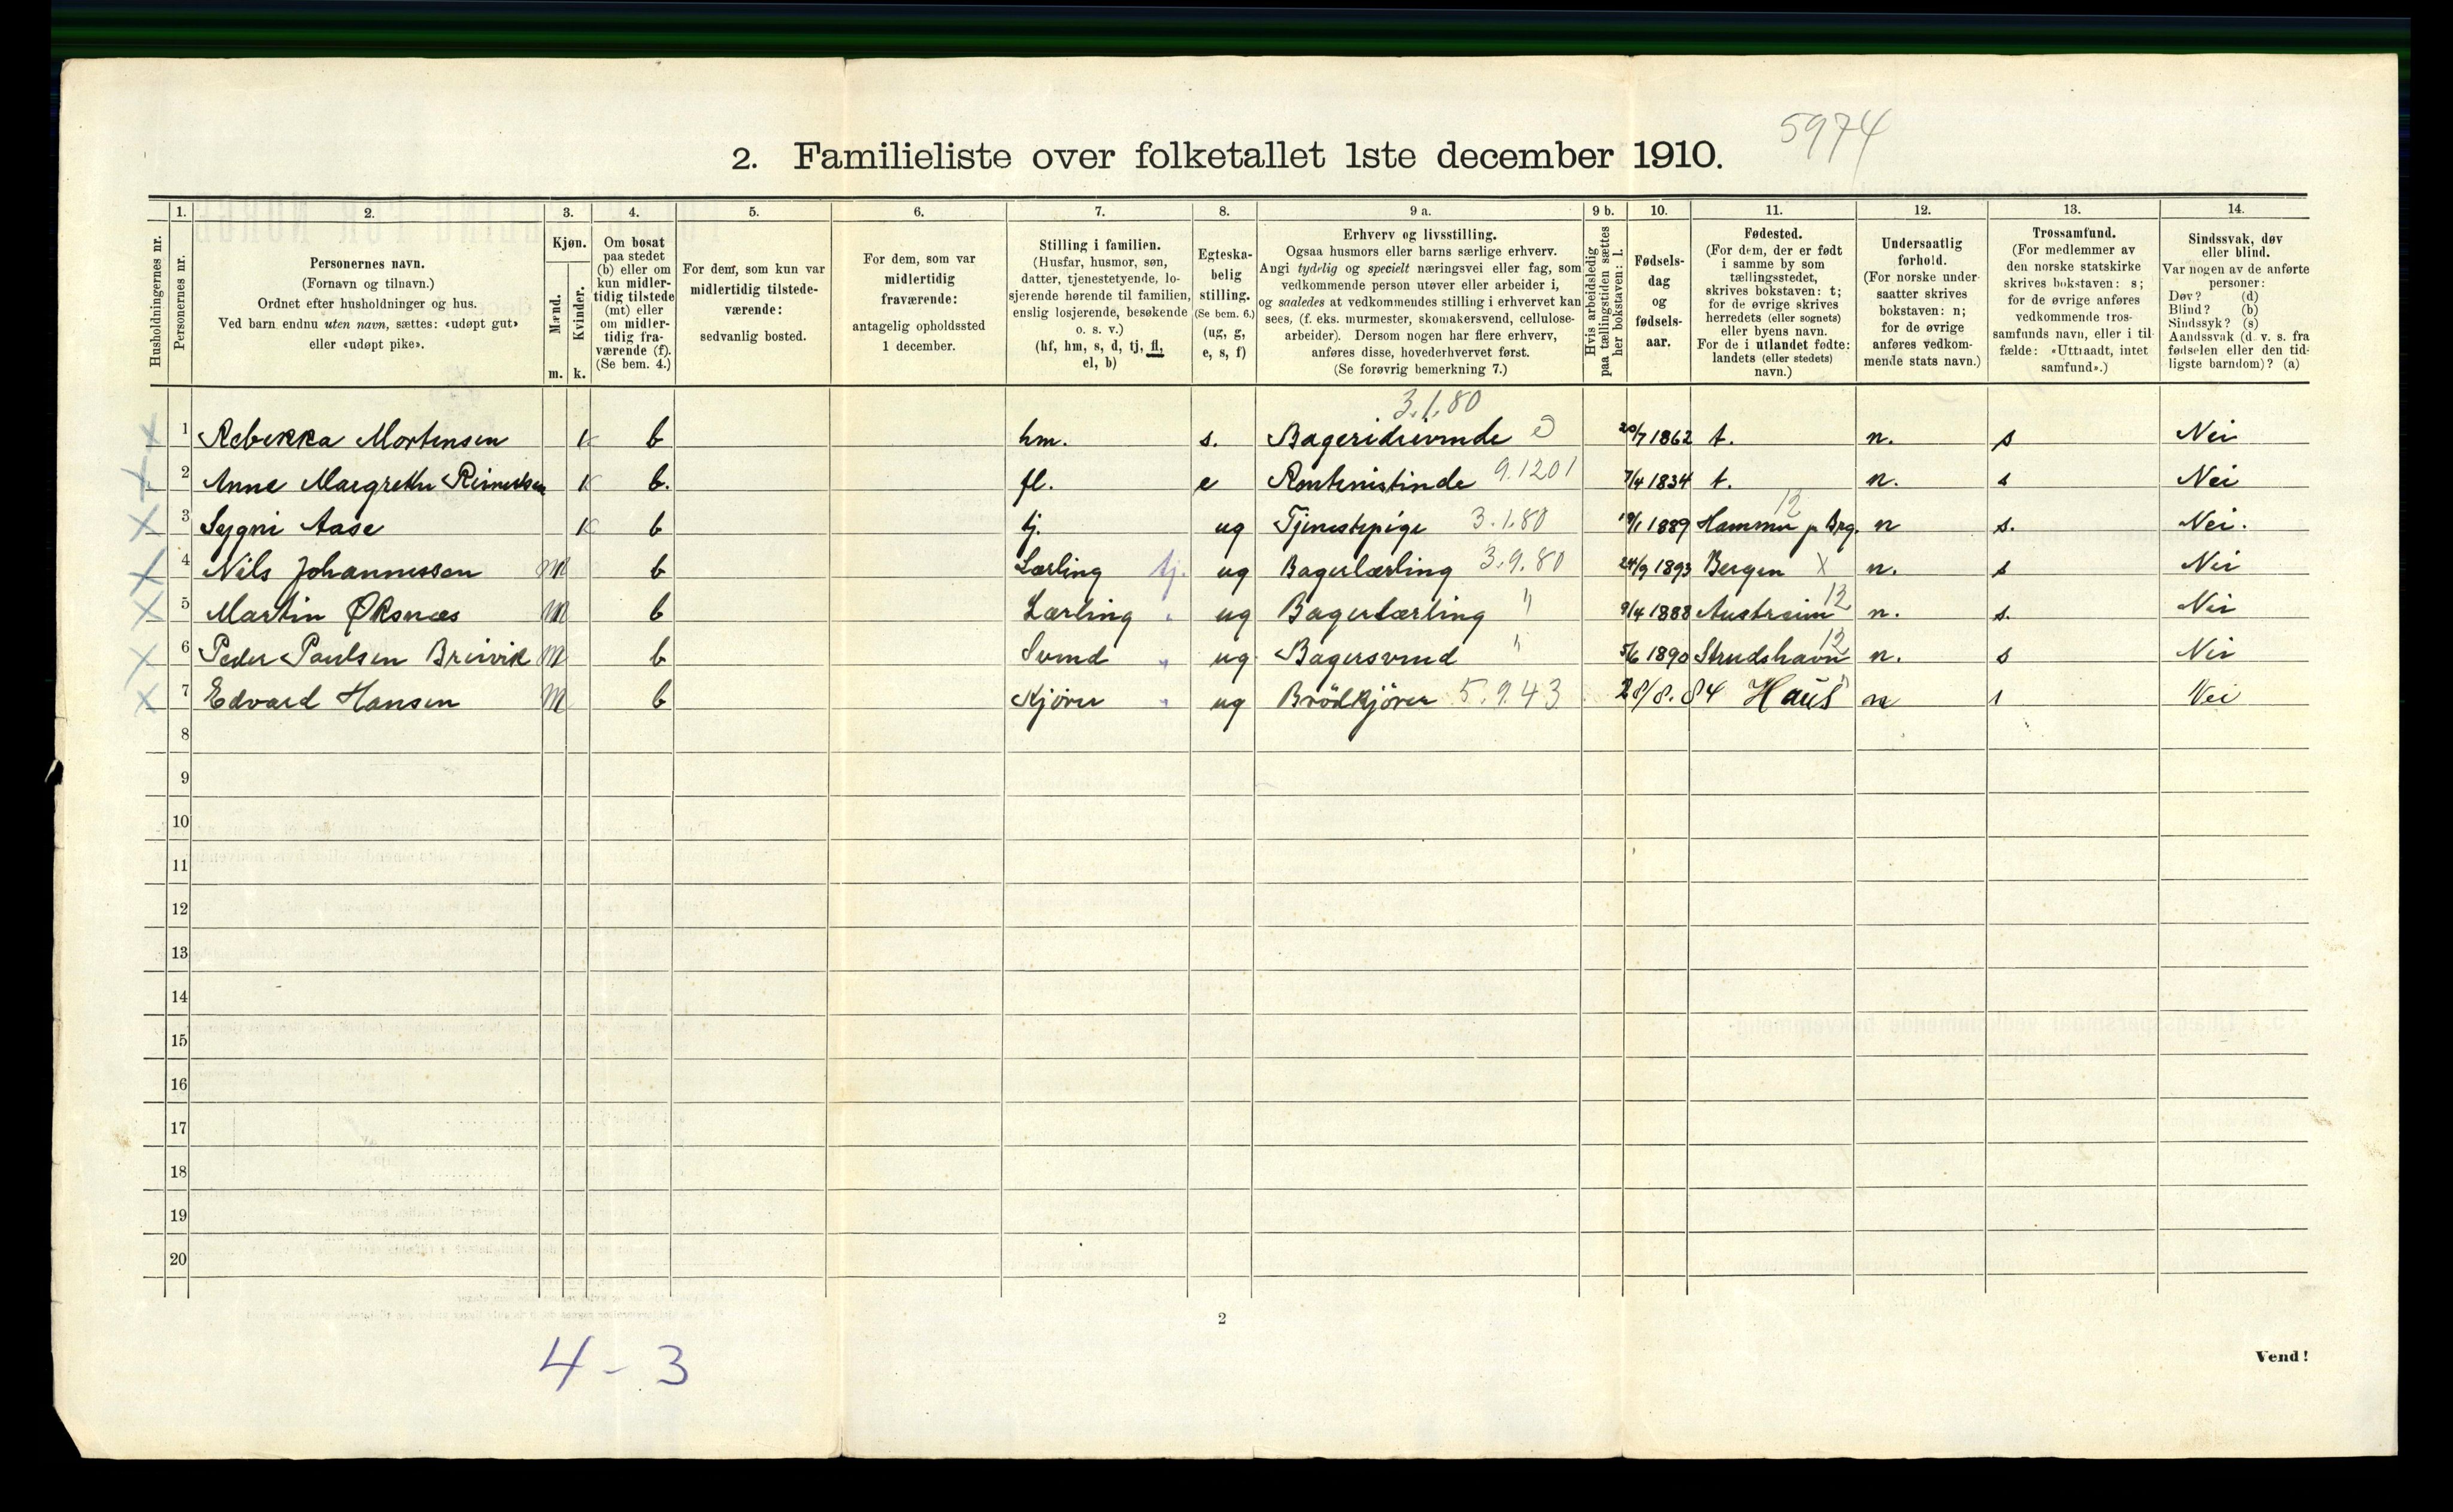 5974
2. Familieliste over folketallet 1ste december 1910.
Husholdningernes nr.
1.
Personernes nr.
2.
Personernes navn.
(Fornavn og tilnavn.)
Ordnet efter husholdninger og hus.
Ved barn endnu uten navn, sættes: «udøpt gut»
eller «udøpt pike».
3.
Kjøn.
Mænd.
Kvinder.
m. k.
4.
Om bosat
paa stedet
(b) eller om
kun midler-
tidig tilstede
(mt) eller
om midler-
tidig fra-
værende (f).
(Se bem. 4.)
5.
For dem, som kun var
midlertidig tilstede-
værende:
sedvanlig bosted.
6.
For dem, som var
midlertidig
fraværende:
antagelig opholdssted
1 december.
7.
Stilling i familien.
(Husfar, husmor, søn,
datter, tjenestetyende, lo-
sjerende hørende til familien,
enslig losjerende, besøkende
o. s. v.)
(hf, hm, s, d, tj, fl,
el, b)
8.
Egteska-
belig
stilling.
(Se bem. 6.)
(ug, g,
e, s, f)
9 a.
Erhverv og livsstilling.
Ogsaa husmors eller barns særlige erhverv.
Angi tydelig og specielt næringsvei eller fag, som
vedkommende person utøver eller arbeider i,
og saaledes at vedkommendes stilling i erhvervet kan
sees, (f. eks. murmester, skomakersvend, cellulose-
arbeider). Dersom nogen har flere erhverv,
anføres disse, hovederhvervet først.
(Se forøvrig bemerkning 7.)
9 b.
Hvis arbeidsledig
paa tællingstiden sættes
her bokstaven: l.
10.
Fødsels-
dag
og
fødsels-
aar.
11.
Fødested.
(For dem, der er født
i samme by som
tællingsstedet,
skrives bokstaven: t;
for de øvrige skrives
herredets (eller sognets)
eller byens navn.
For de i utlandet fødte:
landets (eller stedets)
navn.)
12.
Undersaatlig
forhold.
(For norske under-
saatter skrives
bokstaven: n;
for de øvrige
anføres vedkom-
mende stats navn.)
13.
Trossamfund.
(For medlemmer av
den norske statskirke
skrives bokstaven: s;
for de øvrige anføres
vedkommende tros-
samfunds navn, eller i til-
fælde: «Uttraadt, intet
samfund».)
14.
Sindssvak, døv
eller blind.
Var nogen av de anførte
personer:
Døv? (d)
Blind? (b)
Sindssyk? (s)
Aandssvak (d. v. s. fra
fødselen eller den tid-
ligste barndom)? (a)
3.1.80
X 1 Rebekka Mortensen K b hm. s. Bageridrivende 20/7 1862 t. n. s Nei
X 2 Anne Margrethe K b. fl. e Rentenistinde 9.1201 7/4 1834 t. n. s Nei
12
X 3 Sygni Aase K b tj. ug Tjenestepige 3.1.80 19/1 1889 Hammer p Brg. n s. Nei.
X 4 Nils Johannessen M b Lærling tj. ug Bagerlærling 3.9.80 24/9 1893 Bergen X n. s Nei
X 5 Martin Øksnæs M b Lærling " ug Bagerlærling " 9/4 1888 Austreim 12 n. s. Nei
X 6 Peder Paulsen Breivik M b Svend " ug Bagersvend " 5/6 1890 Strudshavn 12 n. s Nei
X 7 Edvard Hansen M b Kjører " ug Brödkjører 5.9.43 28/8.84 Haus n s Nei
8
9
10
11
12
13
14
15
16
17
18
19
20
2
4 - 3
Vend!